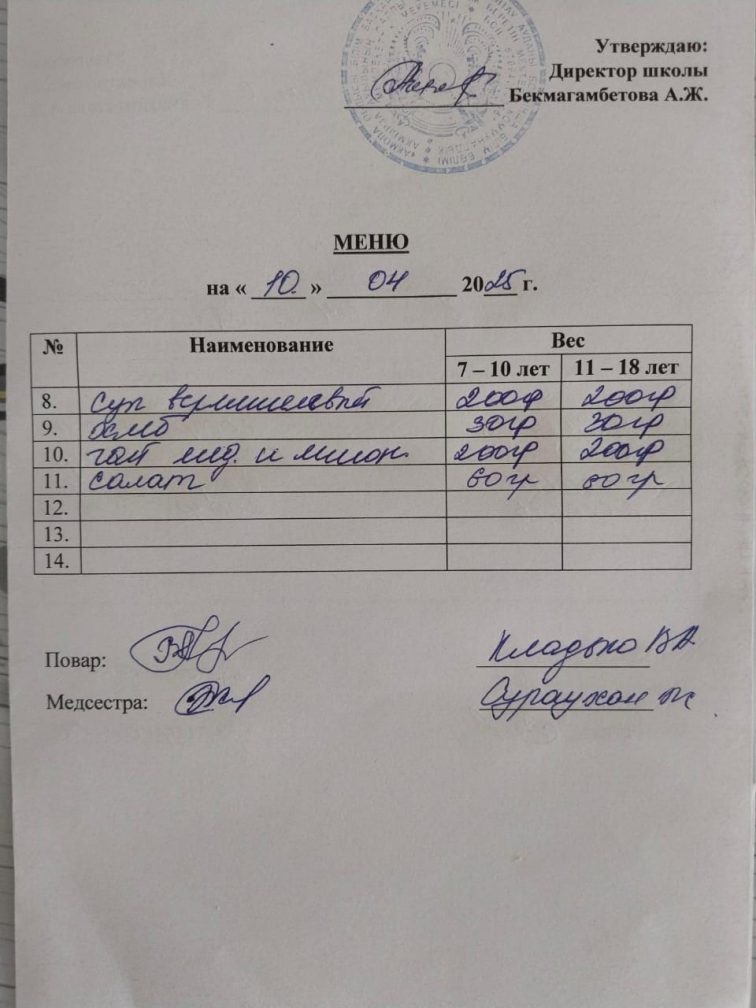 Утверждаю:
Директор школы
Бекмагамбетова А.Ж.
МЕНЮ
на « 10. » 04 2025 г.
№ Наименование Вес
7 – 10 лет 11 – 18 лет
8. суп вермишелевый 200гр 200гр
9. хлеб 30гр 30гр
10. чай и лимон 200гр 200гр
11. салат 60гр
12.
13.
14.
Повар: Кладько ВА
Медсестра: